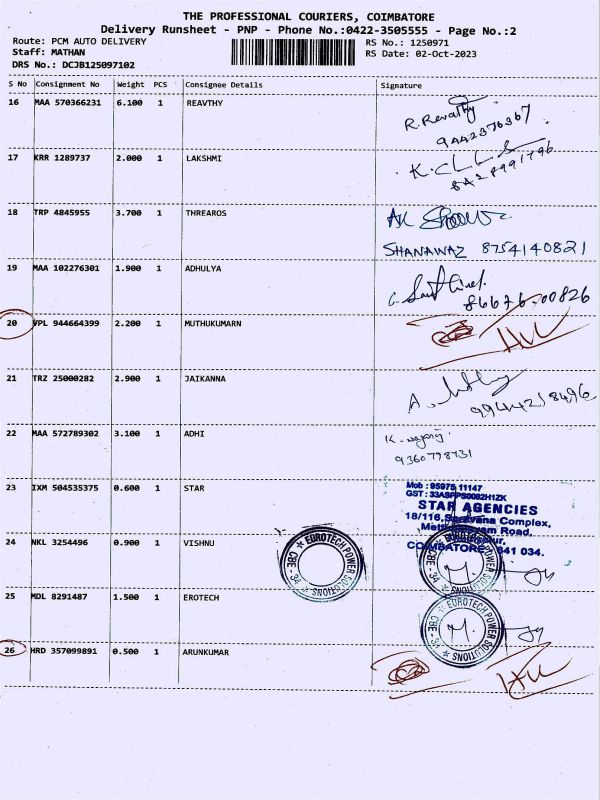 THE PROFESSIONAL COURIERS, COIMBATORE
Delivery Runsheet - PNP - Phone No.:0422-3505555 - Page No.:2
Route: PCM AUTO DELIVERY
Staff: MATHAN
DRS No.: DCJB125097102
RS No.: 1250971
RS Date: 02-Oct-2023
S No Consignment No Weight PCS Consignee Details Signature
16 MAA 570366231 6.100 1 REAVTHY
R. Revathy
9442376367
17 KRR 1289737 2.000 1 LAKSHMI
8428991796
18 TRP 4845955 3.700 1 THREAROS
SHANAWAZ 8754140821
19 MAA 102276301 1.900 1 ADHULYA
86676-00826
20 VPL 944664399 2.200 1 MUTHUKUMARN
21 TRZ 25000282 2.900 1 JAIKANNA
9944218496
22 MAA 572789302 3.100 1 ADHI
9360778731
23 IXM 504535375 0.600 1 STAR
Mob : 95975 11147
STAR AGENCIES
18/116, Saravana Complex,
Road,
COIMBATORE - 641 034.
24 NKL 3254496 0.900 1 VISHNU
EUROTECH POWER SOLUTIONS
CBE - 34
25 MDL 8291487 1.500 1 EROTECH
EUROTECH POWER SOLUTIONS
CBE - 34
26 HRD 357099891 0.500 1 ARUNKUMAR